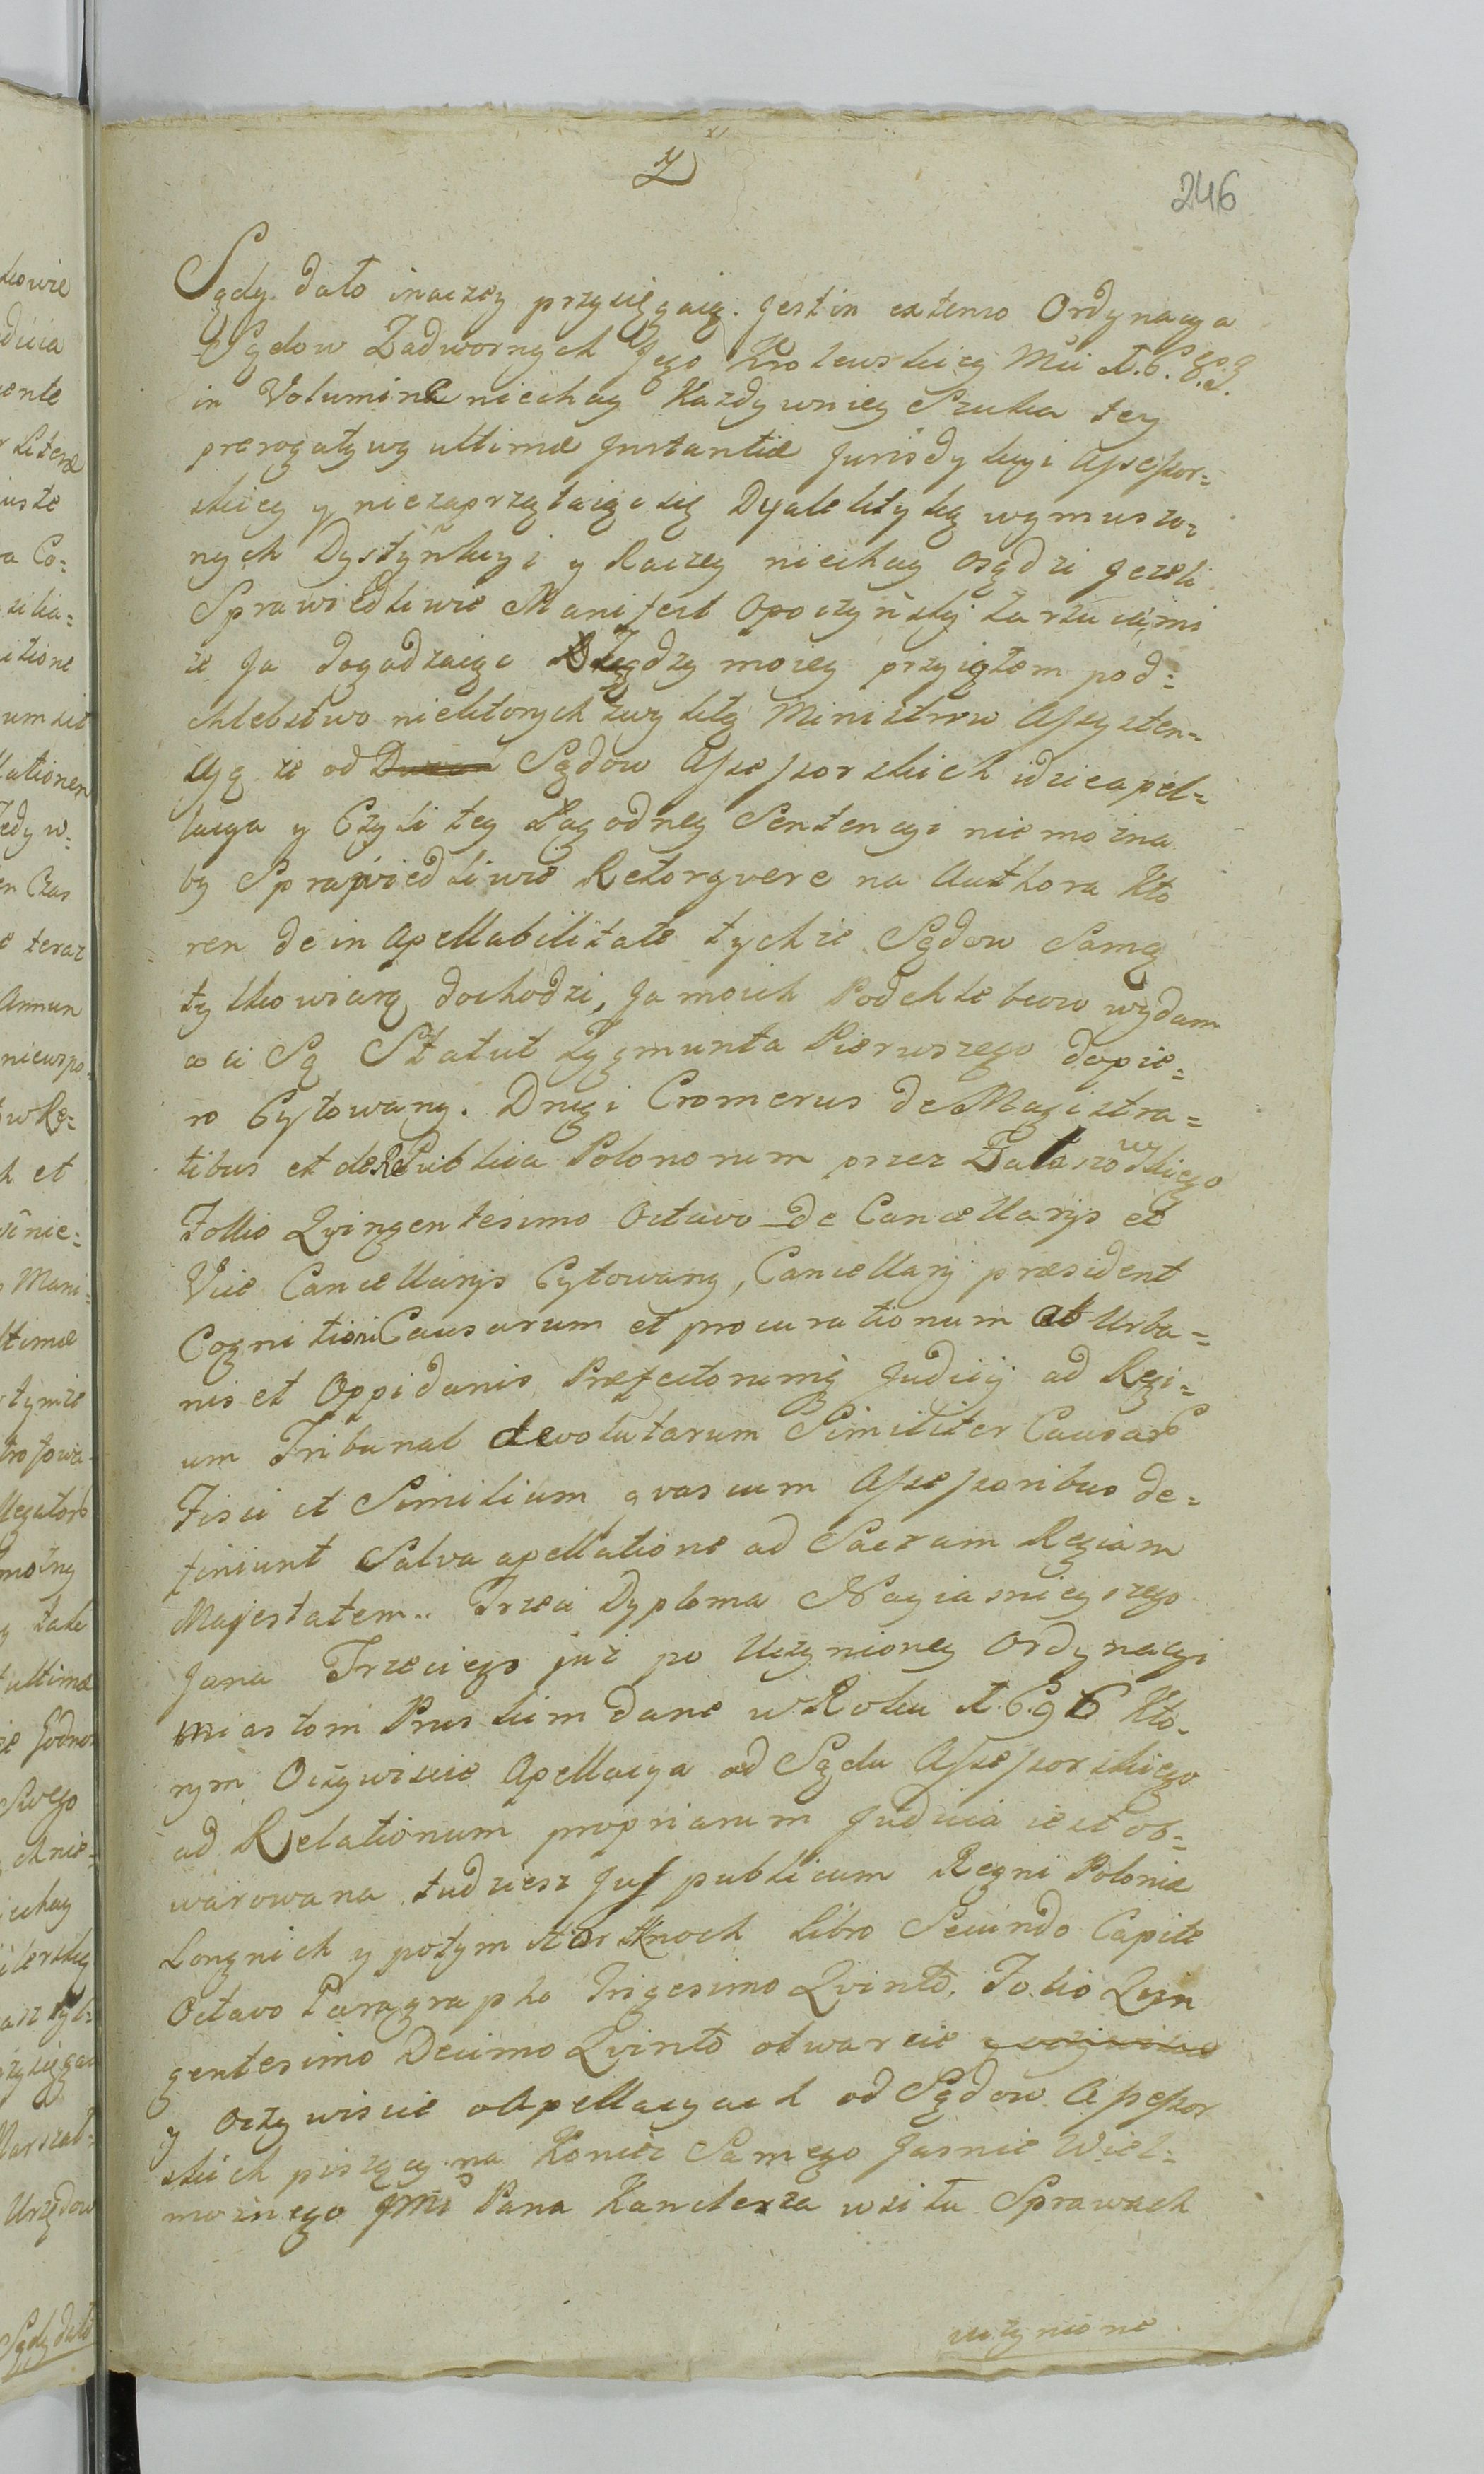 246
Sądy dało inaczey przysięgaią. Jest in extenso Ordynacya
Sądow Zadwornych Jego Krolewskiey Mci
in Volumine niechay Kazdy wniey Szuka tey
prerogatywy ultimæ Instantiæ Jurisdykcyi Assessor=
skiey y niezaprzątaiąc się Dyalektyką wymuszo=
nych Dystynkcyi y Raczey niechay osądzi Jezeli
Sprawiedliwie Manifest Opoczyński zarzuca mi
ze Ja dogadzaiąc Rządzy moiey przyiąłem pod=
chlebstwo niektorych zwykłą Ministrow Assysten=
cyą ze od Sądow Assessorskich idzie apel=
lacya y Czyli tey Łagodney Sentencyi niemozna
by Sprawiedliwie Retorqvere na Authora Kto
ren de in Apellabilitate tychze Sądow Samą
tylko wiarą dochodzi, Ja moich Podchlebcow wydam
a ci Są Statut Zygmunta Pierwszego dopie=
ro Cytowany. Drugi Cromerus de Magistra=
tibus et de RePublica Polonorum przez Zalaszowskiego
Follio Qvingentesimo Octavo De Cancellarijs et
Vice Cancellarijs Cytowany, Cancellarij præsident
Cognitioni Causarum et procurationum ab Urba=
nis et Oppidanis Præfectorumq Judicij ad Regi=
um Tribunal devolutarum Similiter Causar
Fisci et Similium qvas cum Assessoribus de=
finiunt Salva apellatione ad Sacram Regiam
Majestatem.. Trzeci Dyploma Nayiasnieyszego
Jana Trzeciego już po Uczynioney Ordynacyi
miastom Pruskim dane w Roku 1.6.9 6 Kto=
rym Oczywiscie Apellacya od Sądu Assessorskiego
ad Relationum propriarum Judicia iest ob=
warowana tudziesz Jus publicum Regni Poloniæ
Longnich y potym Hartknoch Libro Secundo Capite
Octavo Paragrapho Trigesimo Qvinto, Folio Qvin
gentesimo Decimo Qvinto otwarcie y oczywiscie
y Oczywiscie o Apellacyach od Sądow Assessor
skich piszący na Koniec Samego Jasnie Wiel=
moznego Jmci Pana Kanclerza w kilku Sprawach
uczynione